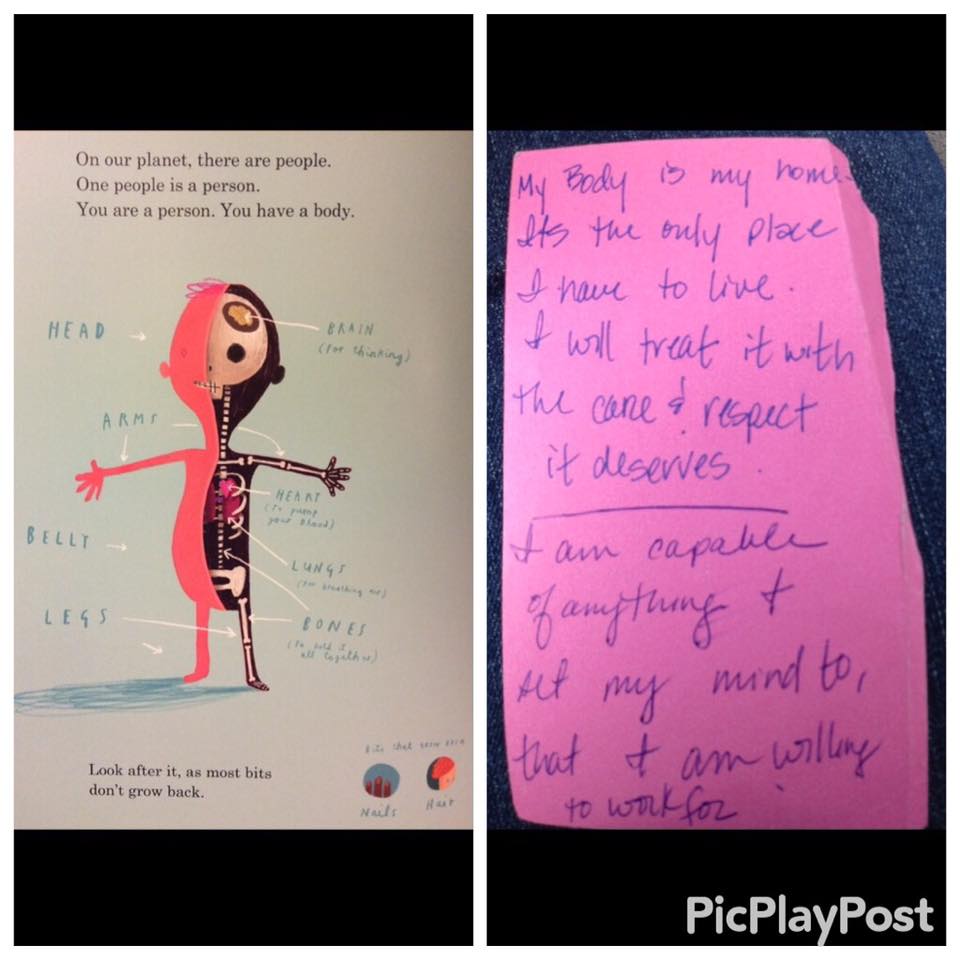 On our planet, there are people.
One people is a person.
You are a person. You have a body.
HEAD
BRAIN
(for thinking)
ARMS
HEART
(to pump
your blood)
BELLY
LUNGS
(for breathing air)
LEGS
BONES
(to hold it
all together)
Look after it, as most bits
don't grow back.
Bits that grow back
Nails
Hair
My Body is my home.
Its the only place
I have to live.
I will treat it with
the care & respect
it deserves.
I am capable
of anything I
set my mind to,
that I am willing
to work for
PicPlayPost